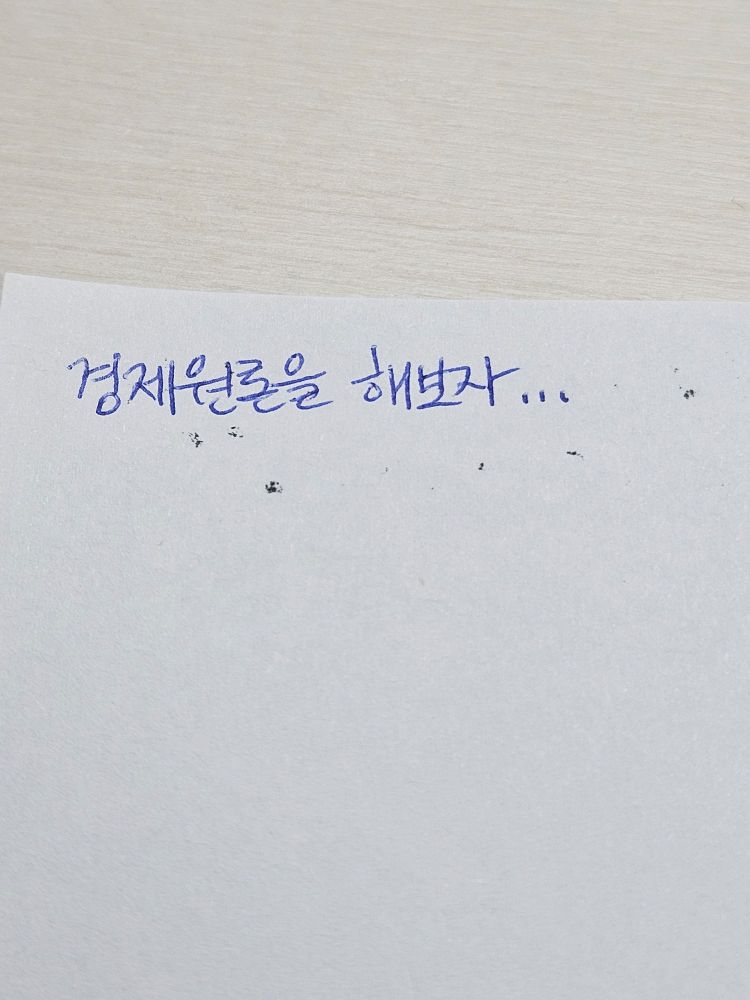 경제원론을 해보자...